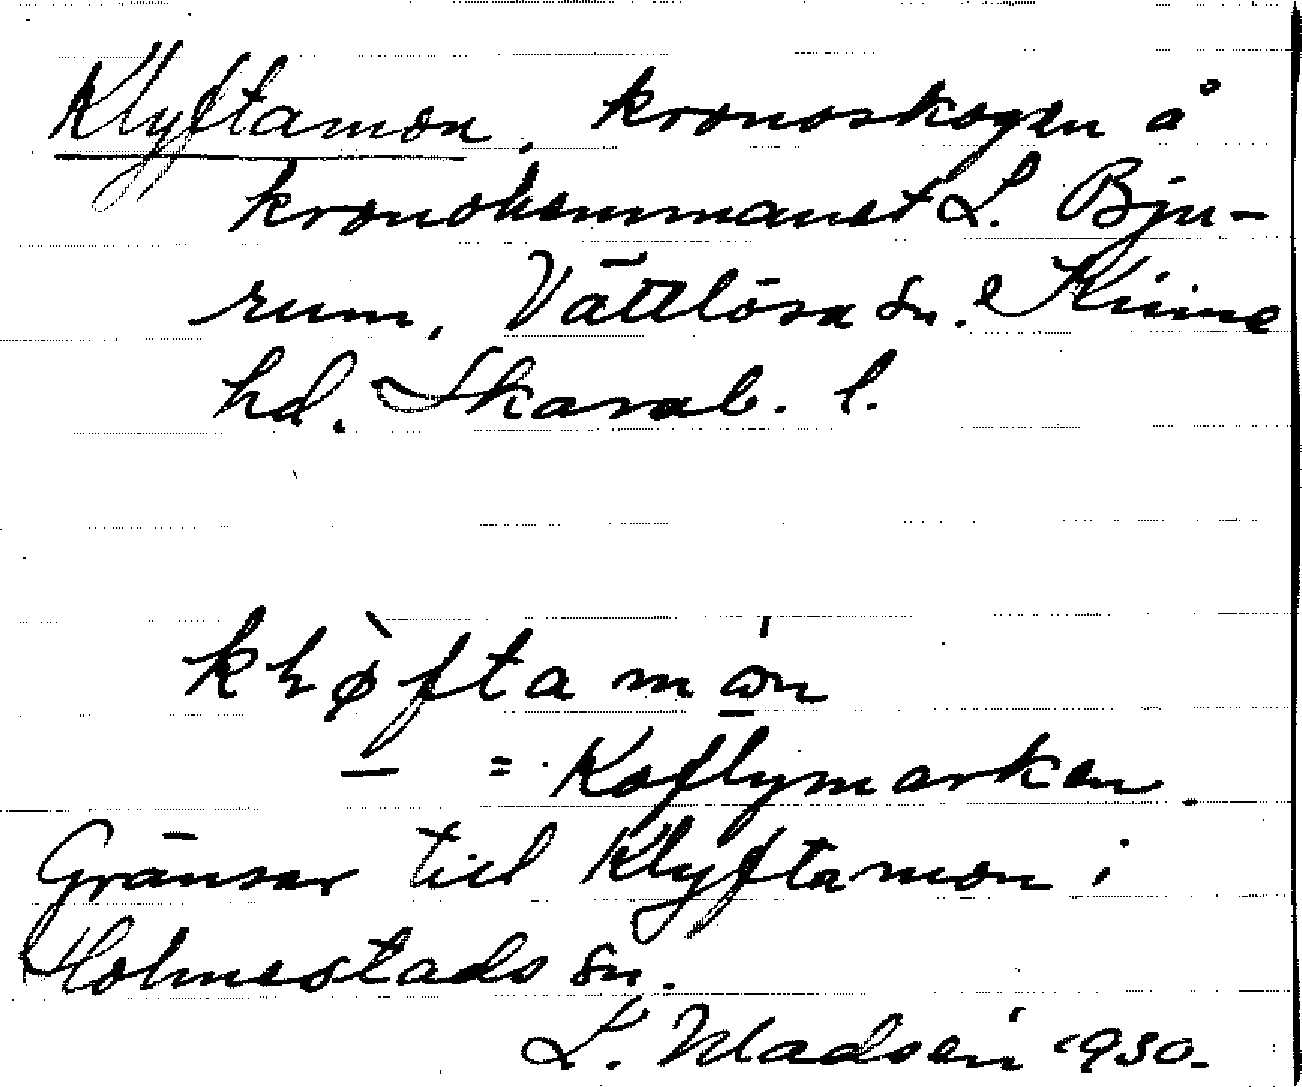 Klyftamon, kronoskogen å
kronohemmanet L. Bju-
rum, Vättlösa sn. Kinne
hd. Skarab. l.
= Koflymarken.
Gränsar till Klyftamon i
Holmestads sn.
L. Madsén 1930.